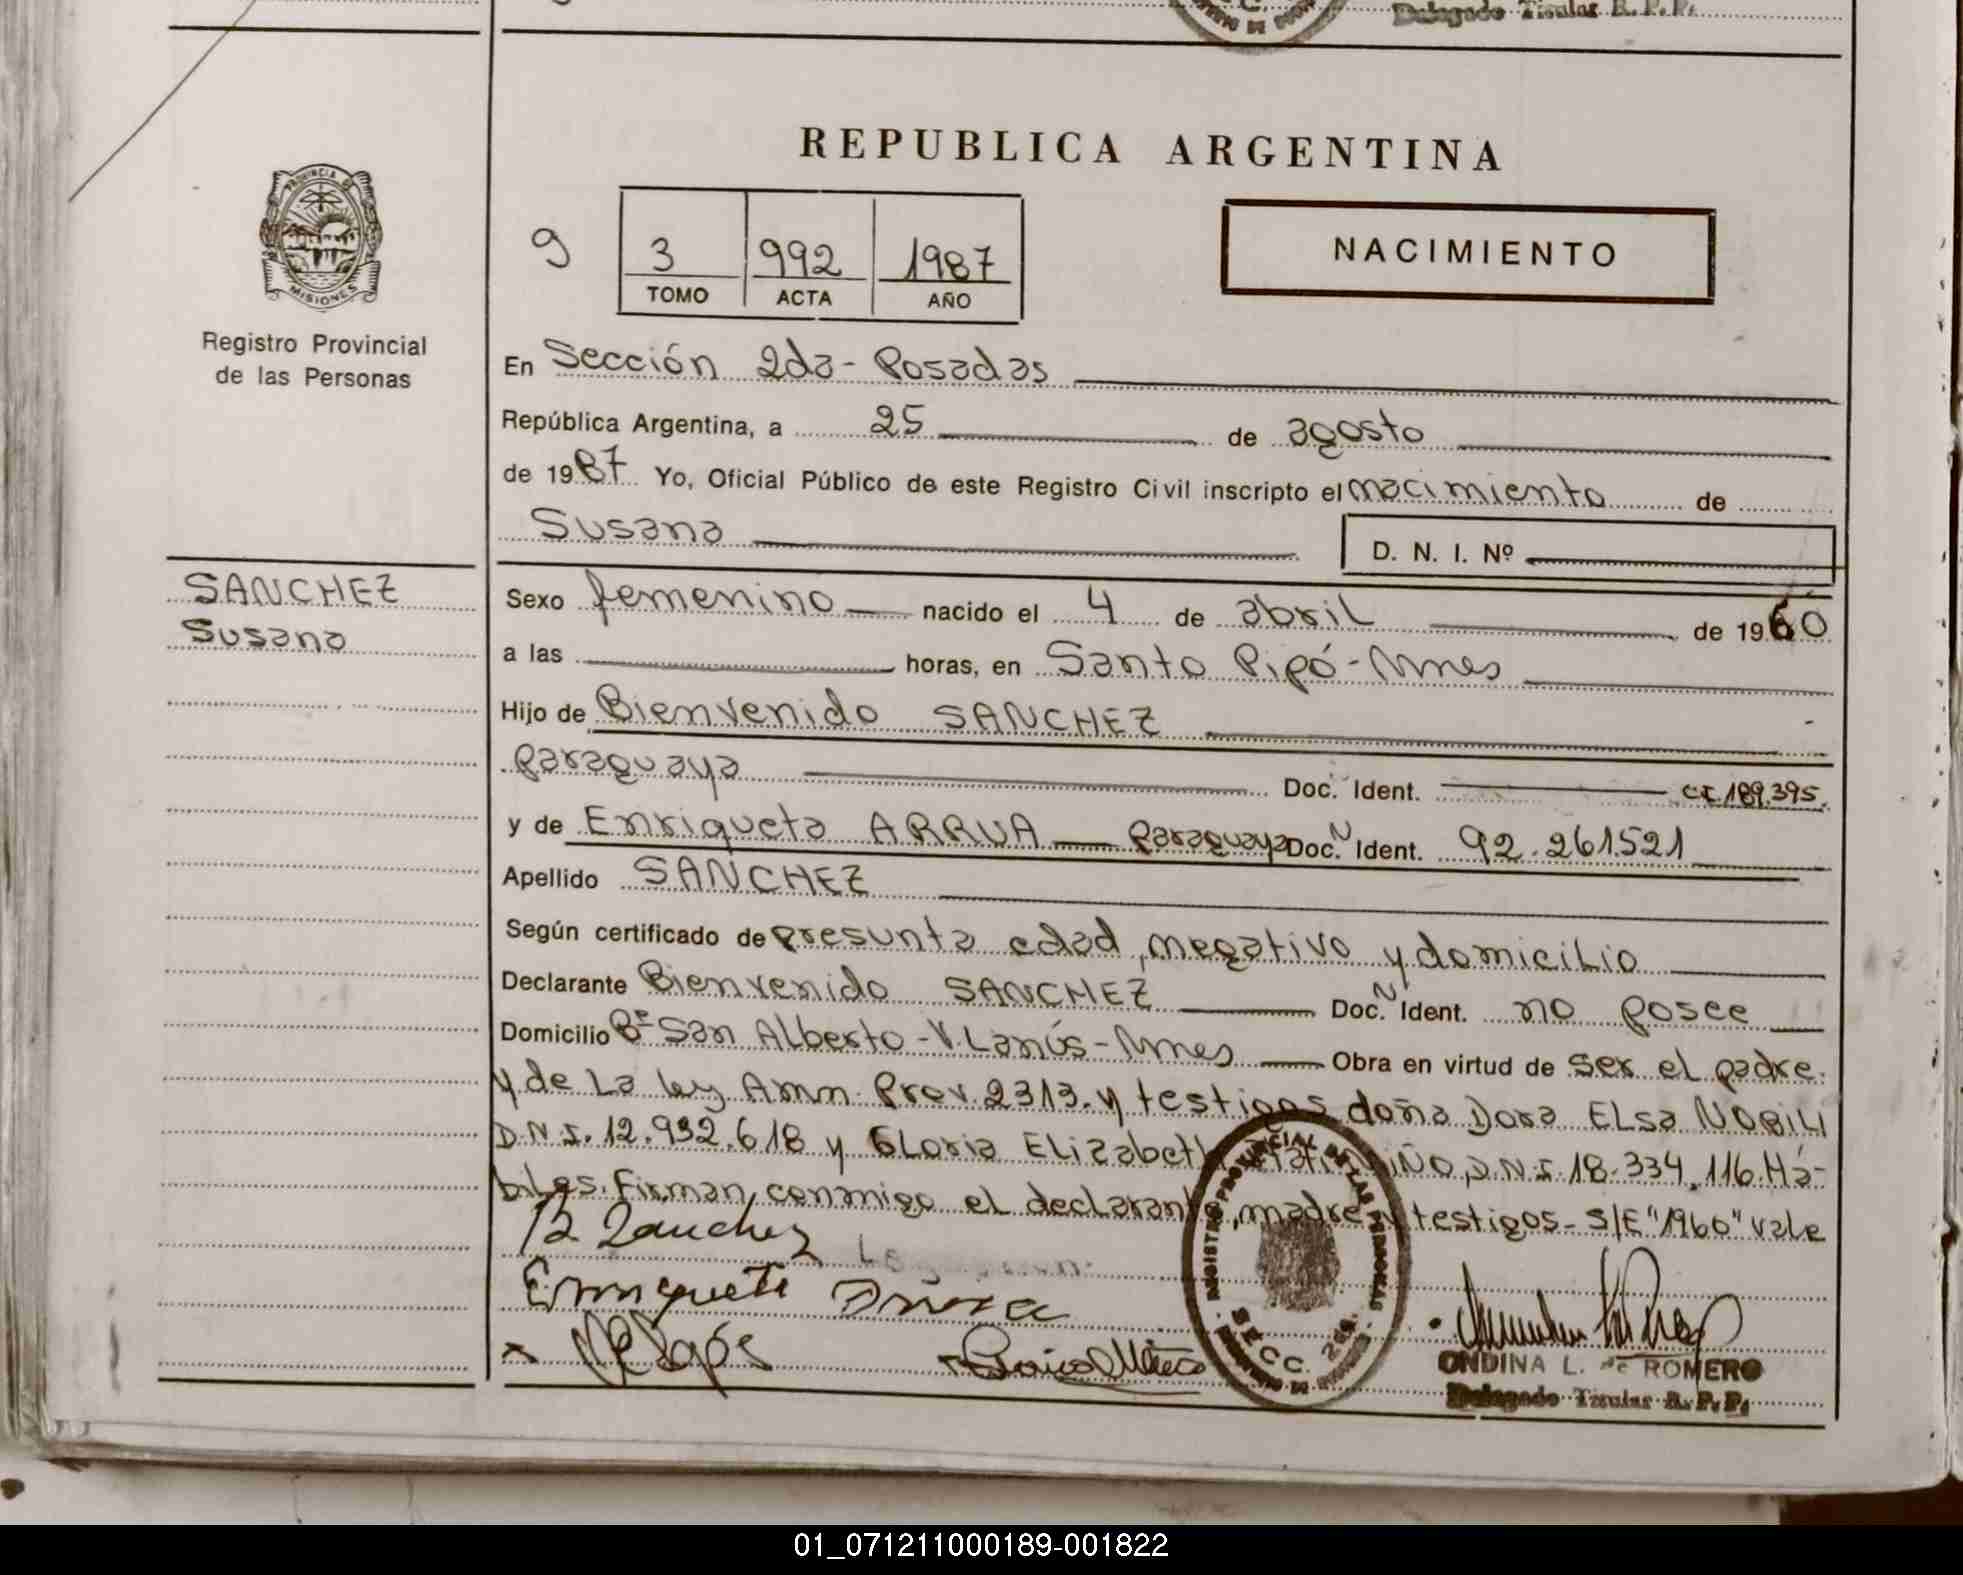 Delegado Titular R. P. P.
REPUBLICA ARGENTINA
PROVINCIA DE
MISIONES
Registro Provincial
de las Personas
9
3 992 1987
TOMO ACTA AÑO
NACIMIENTO
En Sección 2da- Posadas
República Argentina, a 25 de agosto
de 1987 Yo, Oficial Público de este Registro Civil inscripto el nacimiento de
Susana
D. N. I. Nº
SANCHEZ
Susana
Sexo femenino nacido el 4 de abril de 1960
a las horas, en Santo Pipó-Mnes
Hijo de Bienvenido SANCHEZ
paraguaya Doc. Ident. CI.189.395.
y de Enriqueta ARRUA paraguaya Doc. N Ident. 92.261.521
Apellido SANCHEZ
Según certificado de presunta edad, negativo y domicilio
Declarante Bienvenido SANCHEZ Doc. N Ident. no posee
Domicilio Bº San Alberto-V.Lanús-Mnes Obra en virtud de ser el padre.
y de La ley Amn. Prov. 2313. y testigos doña Dora ELsa NOBILI
D.N.I. 12.932.618 y GLoria ELizabeth IÑO, D.N.I. 18.334.116. Há-
biles. Firman conmigo el declarante, madre y testigos- S/E "1960" vale
B Sanchez
Enriqueta
REGISTRO PROVINCIAL DE LAS PERSONAS
SECC. 2da.
ONDINA L. de ROMERO
Delegado Titular R. P. P.
01_071211000189-001822